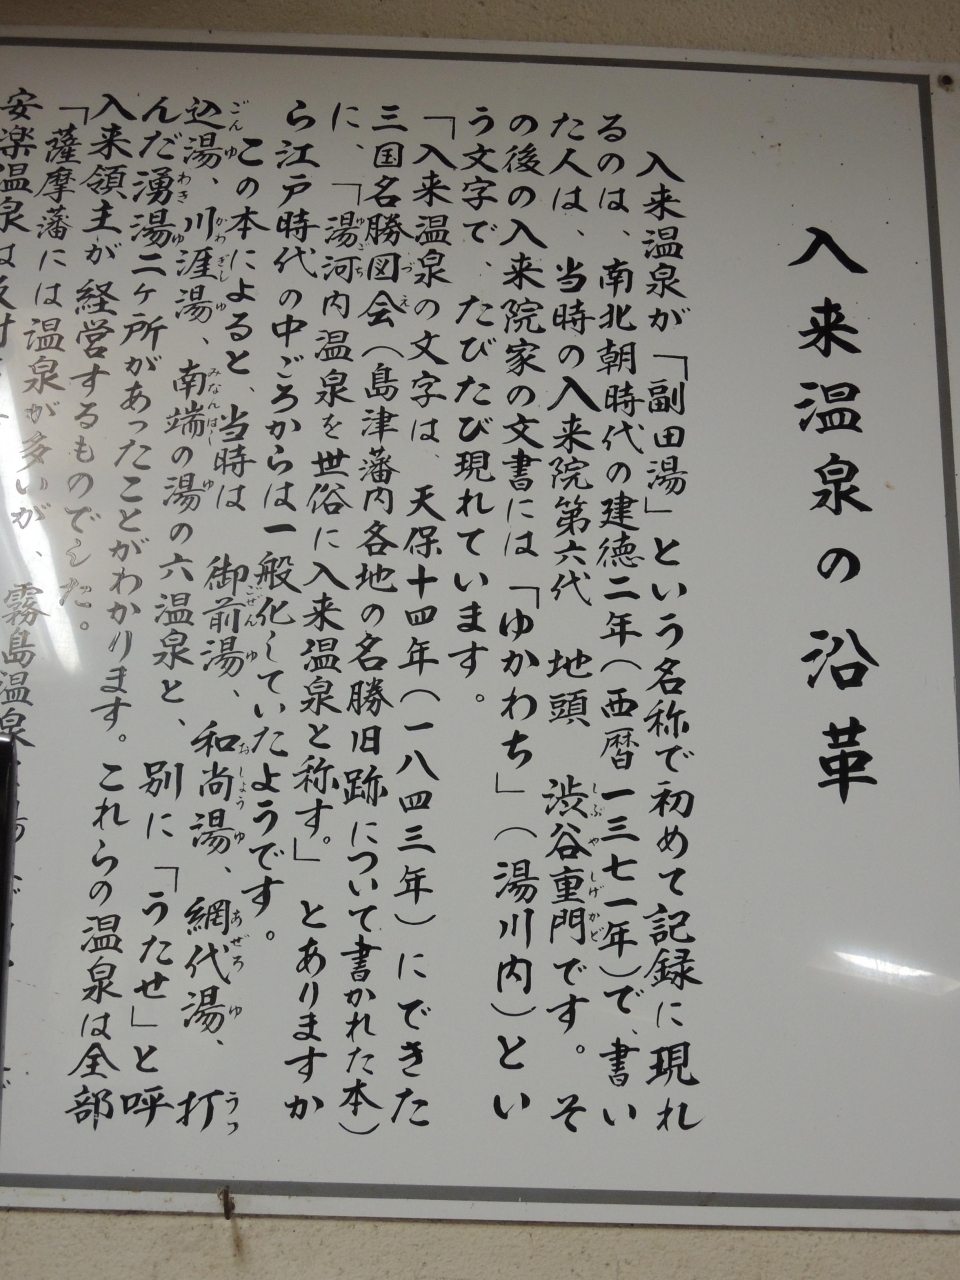 入来温泉の沿革
入来温泉が「副田湯」という名称で初めて記録に現れ
るのは、南北朝時代の建徳二年(西暦一三七一年)で、書い
た人は、当時の入来院第六代 地頭 渋谷重門です。そ
の後の入来院家の文書には「ゆかわち」(湯川内)とい
う文字で、たびたび現れています。
「入来温泉の文字は、天保十四年(一八四三年)にできた
三国名勝図会(島津藩内各地の名勝旧跡について書かれた本)
に、「湯河内温泉を世俗に入来温泉と称す。」とありますか
ら江戸時代の中ごろからは一般化していたようです。
この本によると、当時は 御前湯、和尚湯、網代湯、打
込湯、川涯湯、南端の湯の六温泉と、別に「うたせ」と呼
んだ湧湯二ヶ所があったことがわかります。これらの温泉は全部
入来領主が経営するものでした。
「薩摩藩には温泉が多いが、霧島温泉
安楽温泉は